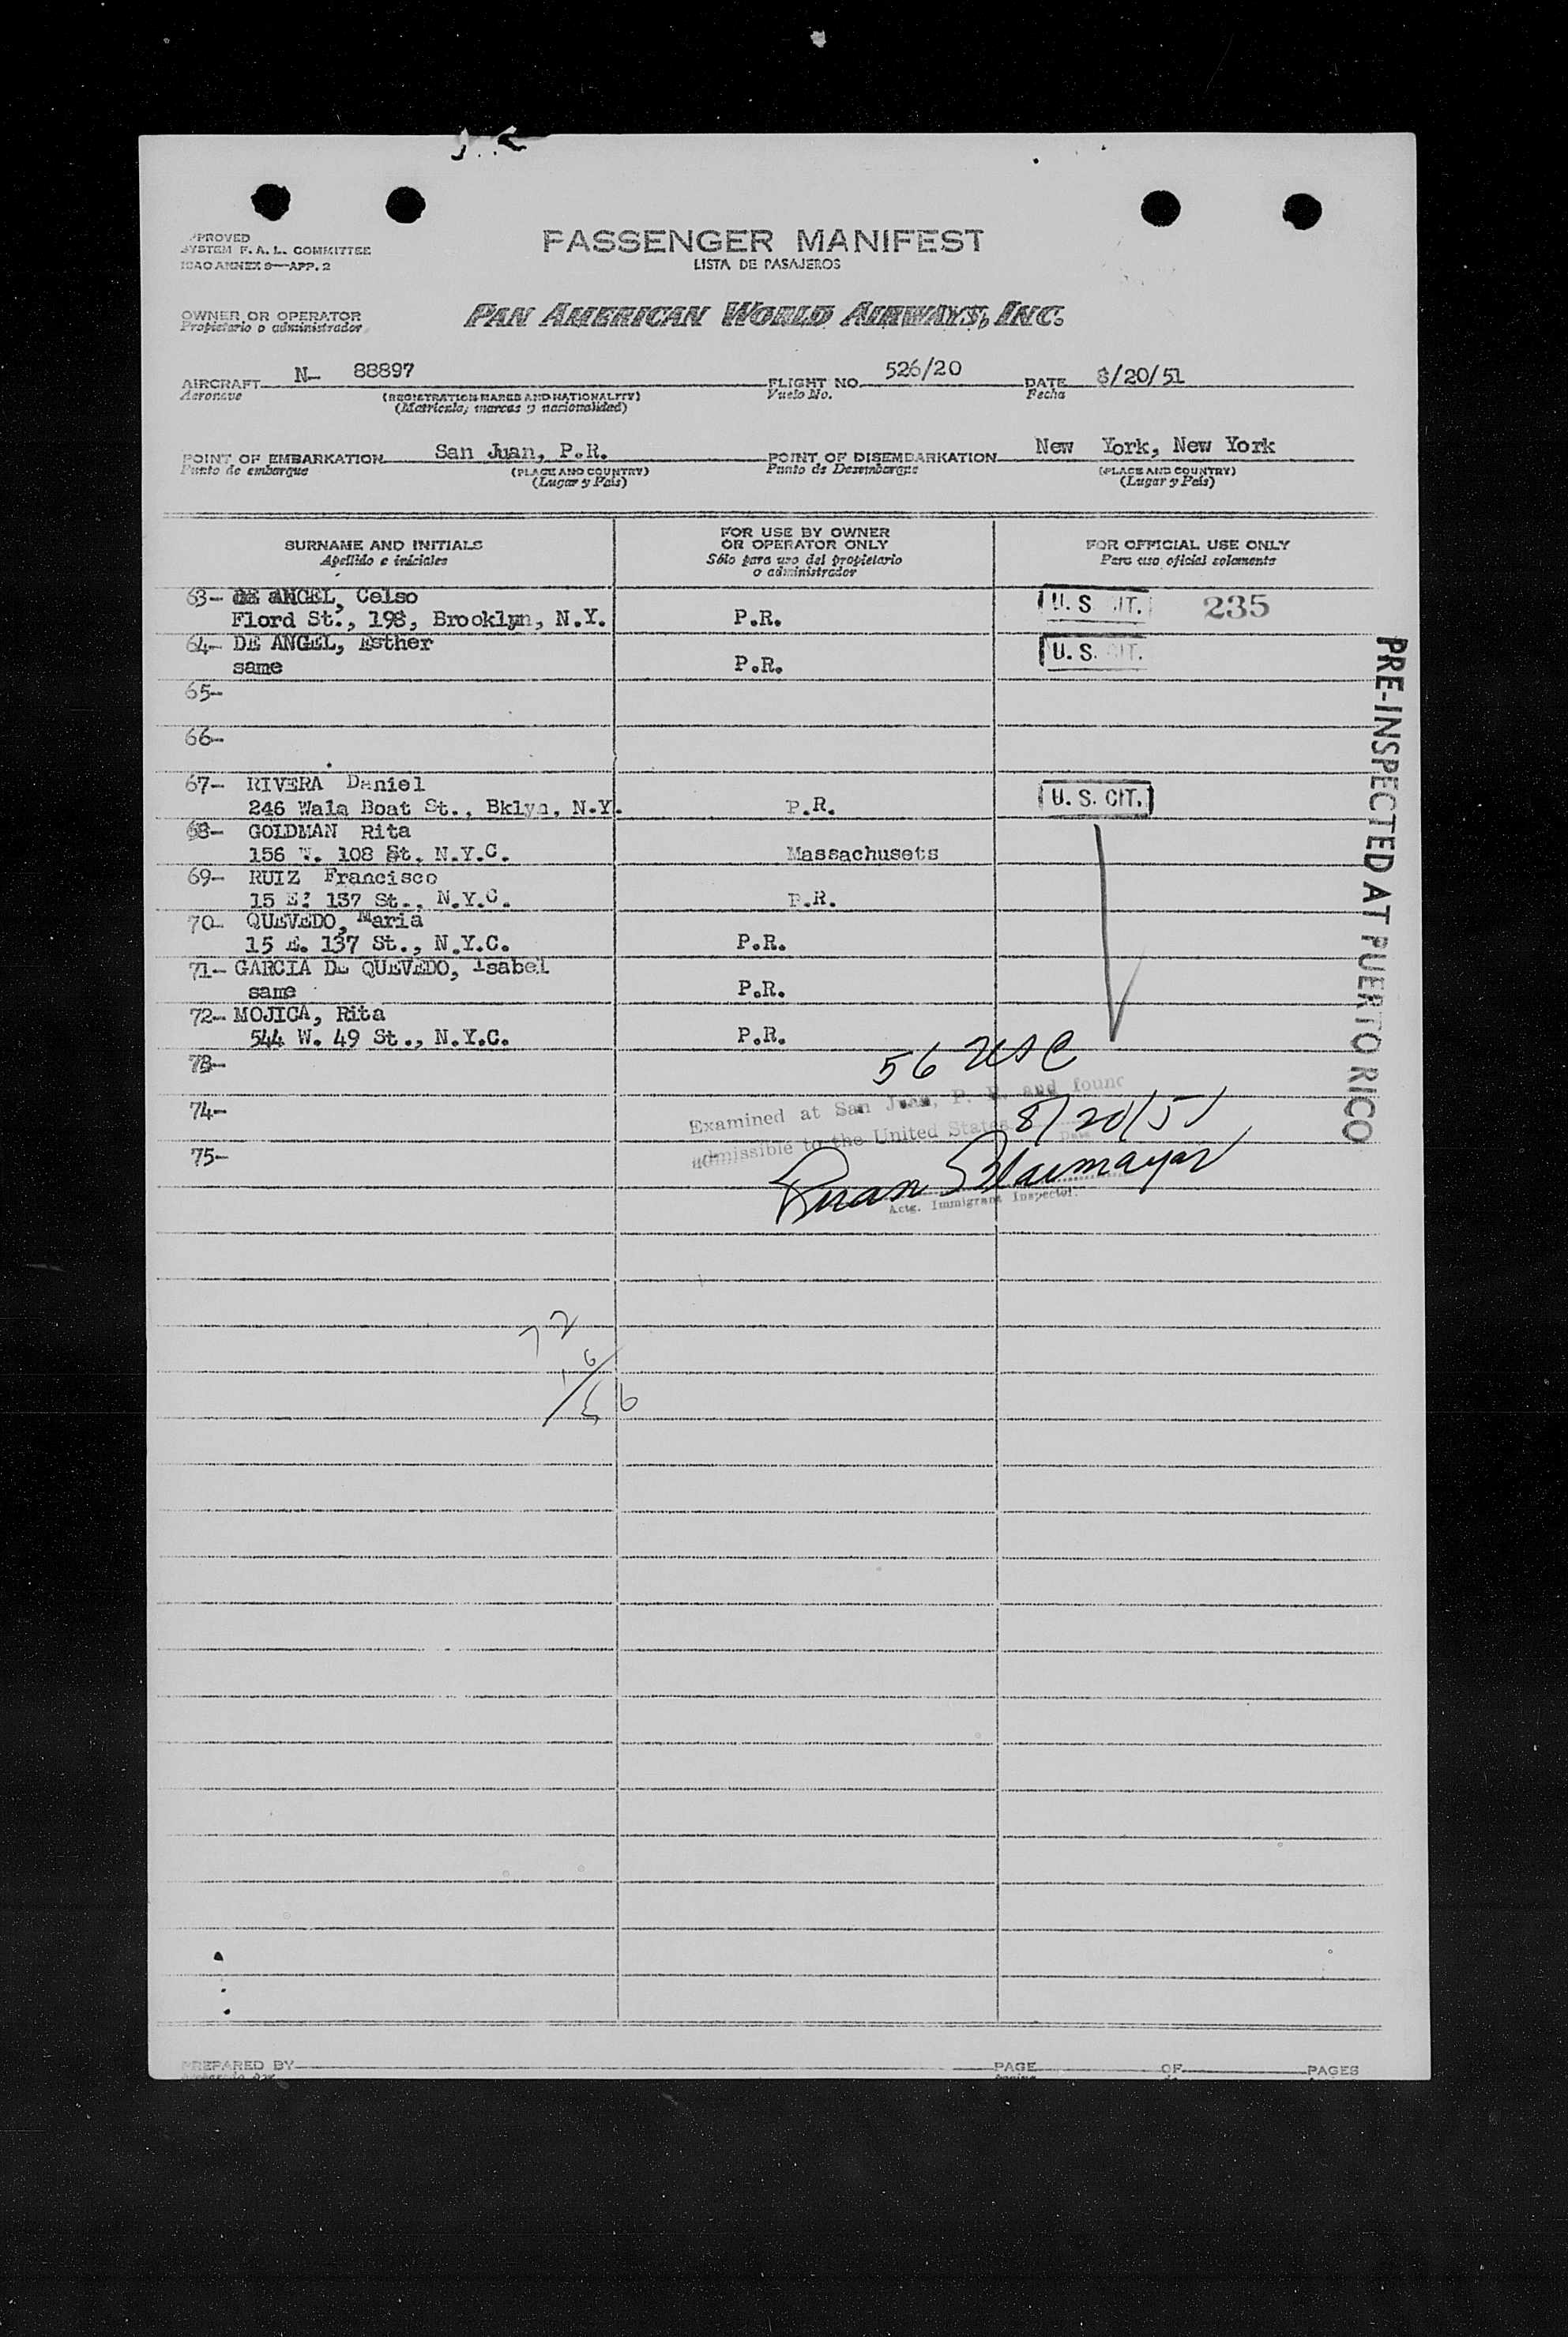 PASSENGER MANIFEST
LISTA DE PASAJEROS
APPROVED
SYSTEM F. A. L. COMMITTEE
ICAO ANNEX 9—APP. 2
OWNER OR OPERATOR
Propietario o administrador
PAN AMERICAN WORLD AIRWAYS, INC.
AIRCRAFT N- 88897 FLIGHT NO. 526/20 DATE 8/20/51
Aeronave (REGISTRATION MARKS AND NATIONALITY) Vuelo No. Fecha
(Matricula, marcas y nacionalidad)
POINT OF EMBARKATION San Juan, P.R. POINT OF DISEMBARKATION New York, New York
Punto de embarque (PLACE AND COUNTRY) Punto de Desembarque (PLACE AND COUNTRY)
(Lugar y Pais) (Lugar y Pais)
SURNAME AND INITIALS
Apellido e iniciales
FOR USE BY OWNER
OR OPERATOR ONLY
Sólo para uso del propietario
o administrador
FOR OFFICIAL USE ONLY
Para uso oficial solamente
63- DE ANGEL, Celso U. S. CIT. 235
Flord St., 198, Brooklyn, N.Y. P.R.
64- DE ANGEL, Esther U. S. CIT.
same P.R.
65-
66-
67- RIVERA Daniel U. S. CIT.
246 Wala Boat St., Bklyn, N.Y. P.R.
68- GOLDMAN Rita
156 W. 108 St. N.Y.C. Massachusets
69- RUIZ Francisco
15 E. 137 St., N.Y.C. P.R.
70- QUEVEDO, Maria
15 E. 137 St., N.Y.C. P.R.
71- GARCIA DE QUEVEDO, Isabel
same P.R.
72- MOJICA, Rita
544 W. 49 St., N.Y.C. P.R.
73-
56 USC
74-
Examined at San Juan, P. R. and found
admissible to the United States 8/20/51
Date
75-
Actg. Immigrant Inspector.
PRE-INSPECTED AT PUERTO RICO
72
16
56
PREPARED BY PAGE OF PAGES